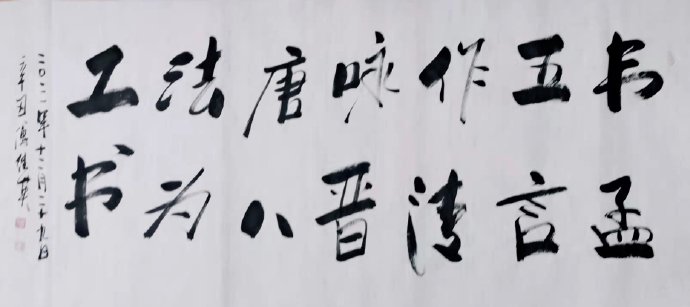 书孟
五言
作清
咏晋
唐八
法为
工书
二〇二一年十二月二十九日